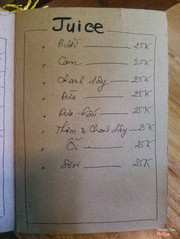 Juice
Bưởi 25K
Cam 25K
Chanh dây 25K
Dừa 25K
Dưa hấu 25K
Thơm & Chanh dây 25K
Ổi 25K
Sơri 25K